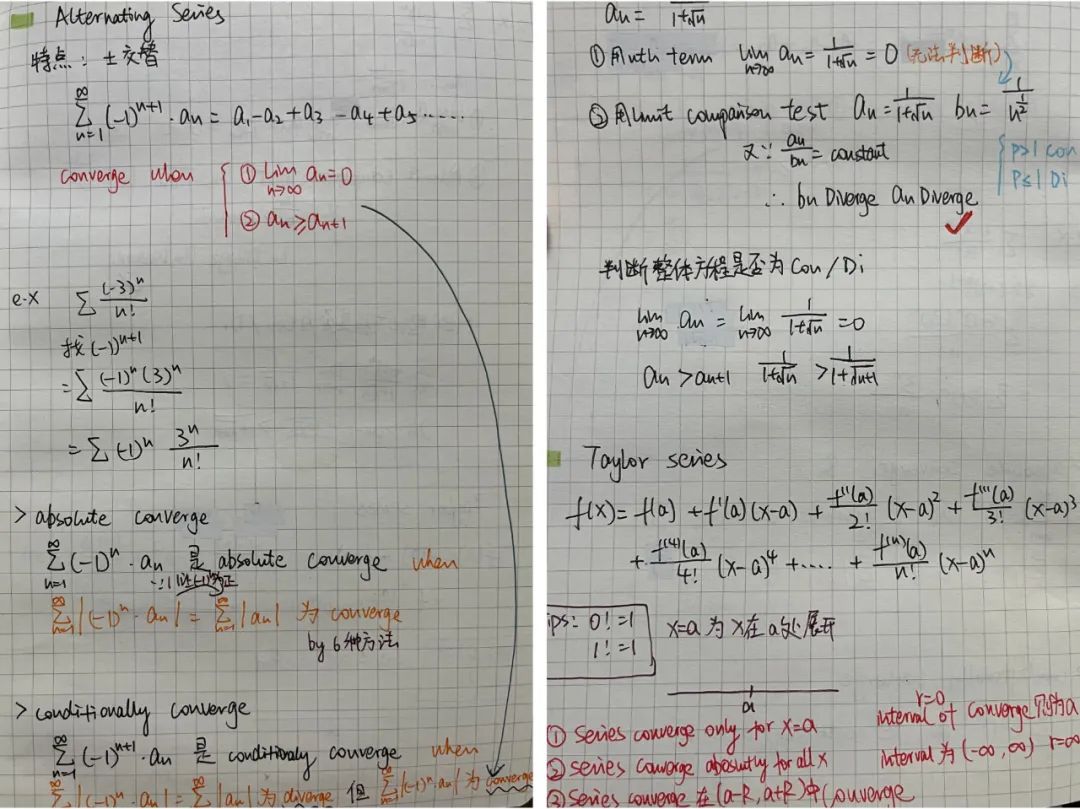 Alternating Series
特点: ±交替
∞∑n=1 (-1)^{n+1}·an = a1-a2+a3-a4+a5......
converge when { ① lim n→∞ an=0
② an≥an+1
e.x ∑ (-3)^n / n!
找(-1)^{n+1}
=∑ (-1)^n(3)^n / n!
=∑ (-1)^n 3^n / n!
> absolute converge
∞∑n=1 (-1)^n·an 是 absolute converge when
∞∑n=1 |(-1)^n·an| = ∞∑n=1 |an| 为 converge
by 6种方法
> conditionally converge
∞∑n=1 (-1)^{n+1}·an 是 conditionaly converge when
∞∑n=1 |(-1)^n·an| = ∞∑ |an| 为 diverge 但 ∞∑n=1 (-1)^n·an 为 converge
an = 1/(1+√n)
①用nth term lim n→∞ an = 1/(1+√n) = 0 (无法判断)
②用limit comparison test an = 1/(1+√n) bn = 1/n^{1/2}
又∵ an/bn = constant
{ p>1 Con
p≤1 Di
∴ bn Diverge an Diverge
判断整体方程是否为 Con/Di
lim n→∞ an = lim n→∞ 1/(1+√n) = 0
an > an+1 1/(1+√n) > 1/(1+√n+1)
Taylor series
f(x) = f(a) + f'(a)(x-a) + f''(a)/2! (x-a)^2 + f'''(a)/3! (x-a)^3
+ f^{(4)}(a)/4! (x-a)^4 + .... + f^{(n)}(a)/n! (x-a)^n
ps: 0!=1
1!=1
x=a 为 x在a处展开
a
① Series converge only for x=a
r=0
interval of converge 则为a
② series converge absolutly for all x
interval 为 (-∞, ∞) r=∞
③ Series converge 在 (a-R, a+R) 中 converge